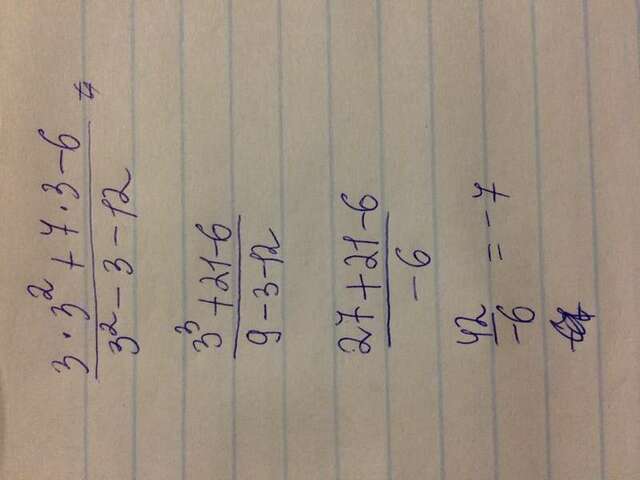 3 · 3² + 7 · 3 - 6
3² - 3 - 12
3³ + 21 - 6
9 - 3 - 12
27 + 21 - 6
- 6
42
-6
= - 7